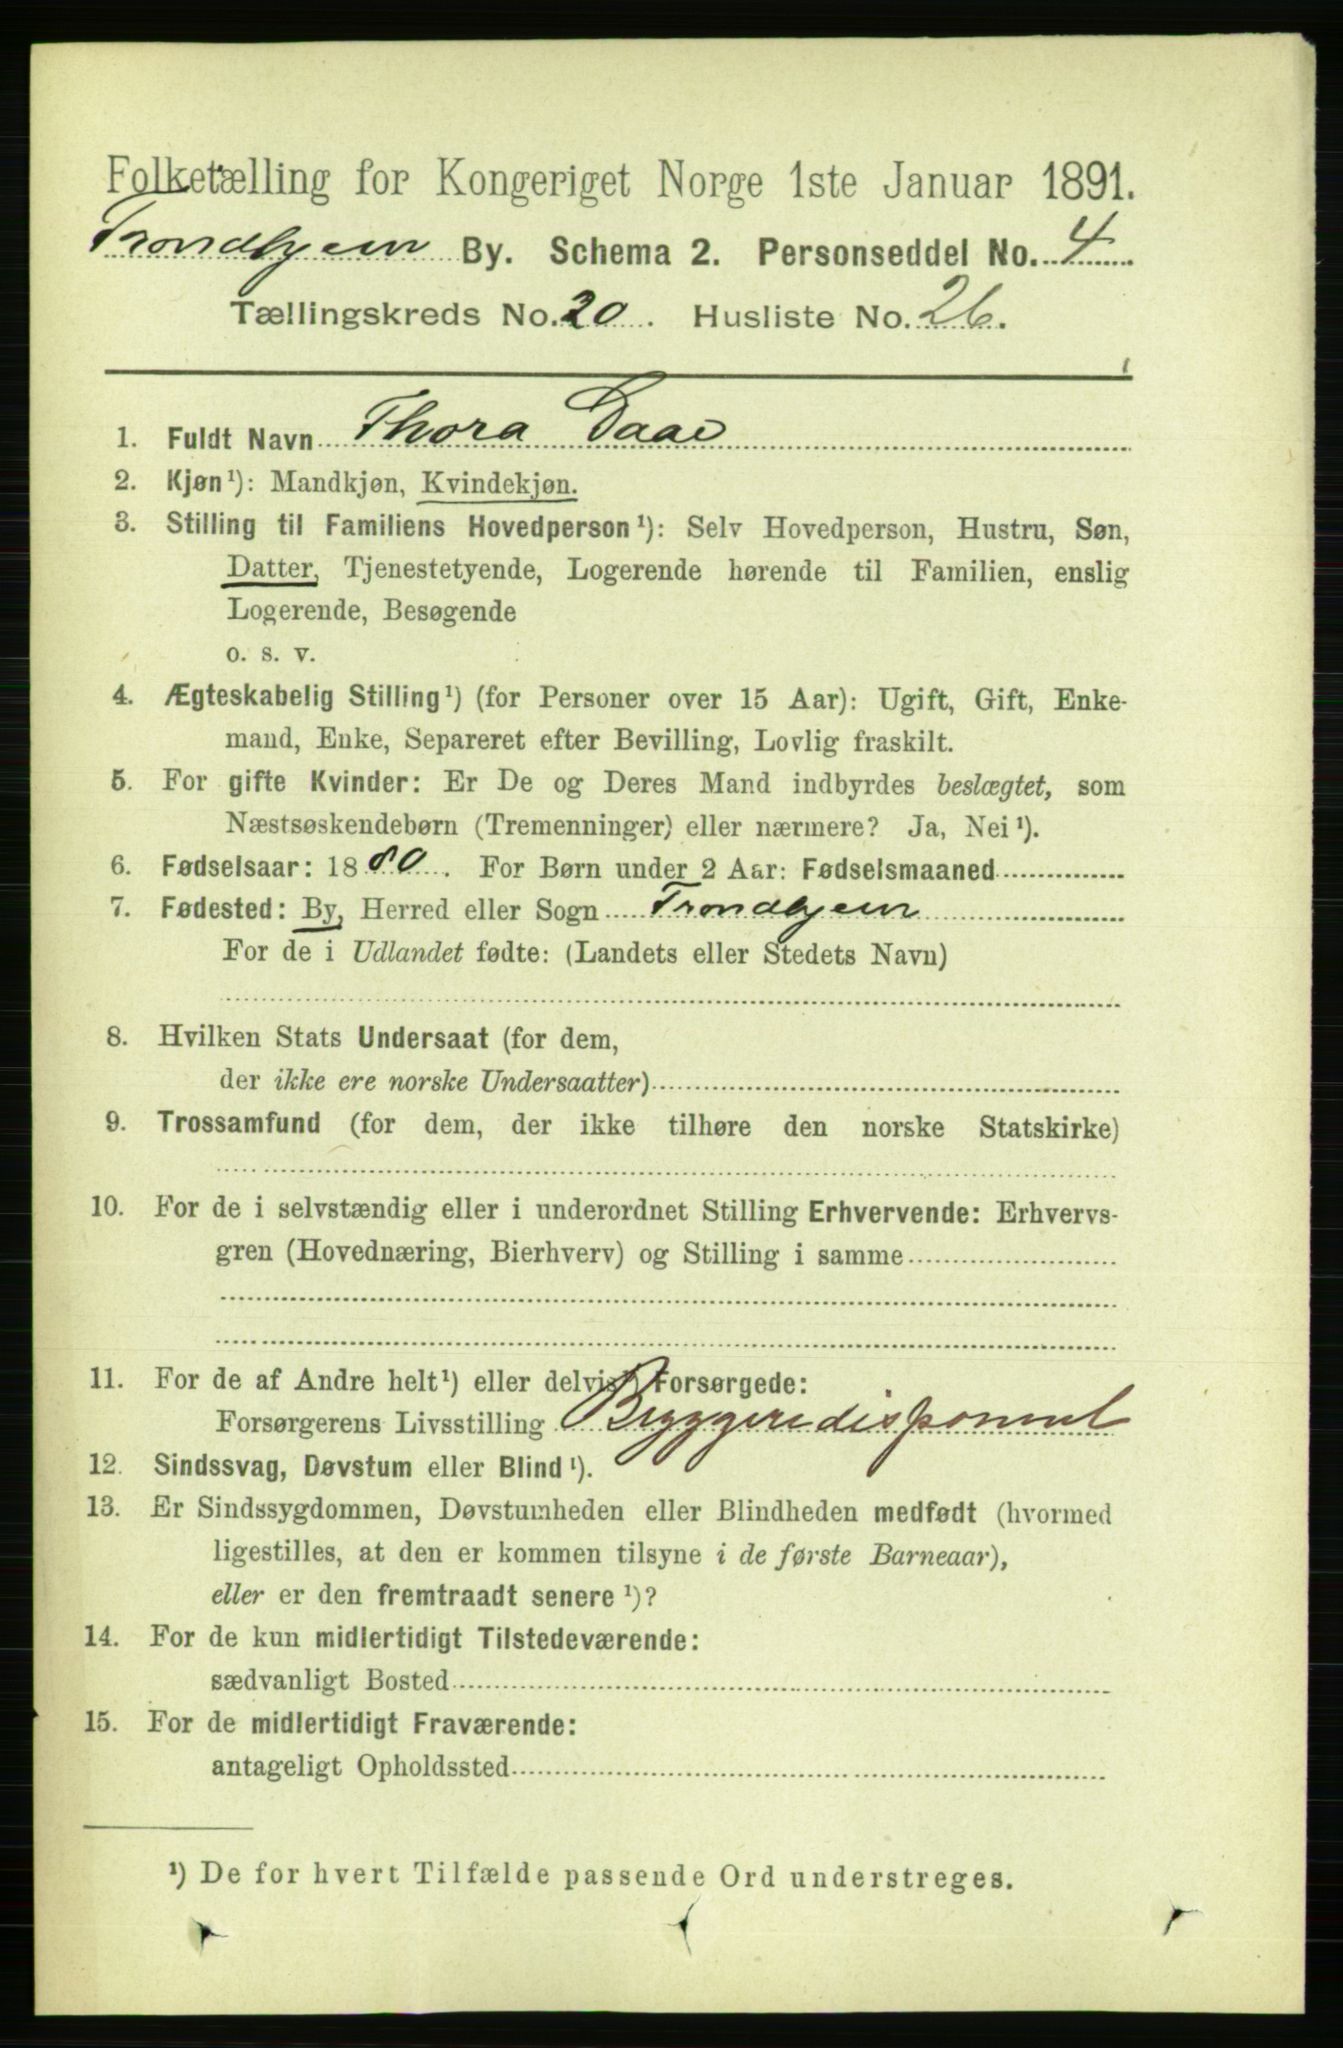 Folketælling for Kongeriget Norge 1ste Januar 1891.
Trondhjem By. Schema 2. Personseddel No. 4
Tællingskreds No. 20. Husliste No. 26.
1. Fuldt Navn Thora Daae
2. Kjøn¹): Mandkjøn, Kvindekjøn.
3. Stilling til Familiens Hovedperson¹): Selv Hovedperson, Hustru, Søn,
Datter, Tjenestetyende, Logerende hørende til Familien, enslig
Logerende, Besøgende
o. s. v.
4. Ægteskabelig Stilling¹) (for Personer over 15 Aar): Ugift, Gift, Enke-
mand, Enke, Separeret efter Bevilling, Lovlig fraskilt.
5. For gifte Kvinder: Er De og Deres Mand indbyrdes beslægtet, som
Næstsøskendebørn (Tremenninger) eller nærmere? Ja, Nei¹).
6. Fødselsaar: 1880. For Børn under 2 Aar: Fødselsmaaned
7. Fødested: By, Herred eller Sogn Trondhjem
For de i Udlandet fødte: (Landets eller Stedets Navn)
8. Hvilken Stats Undersaat (for dem,
der ikke ere norske Undersaatter)
9. Trossamfund (for dem, der ikke tilhøre den norske Statskirke)
10. For de i selvstændig eller i underordnet Stilling Erhvervende: Erhvervs-
gren (Hovednæring, Bierhverv) og Stilling i samme
11. For de af Andre helt¹) eller delvis¹) Forsørgede:
Forsørgerens Livsstilling Bryggeridisponent
12. Sindssvag, Døvstum eller Blind¹).
13. Er Sindssygdommen, Døvstumheden eller Blindheden medfødt (hvormed
ligestilles, at den er kommen tilsyne i de første Barneaar),
eller er den fremtraadt senere¹)?
14. For de kun midlertidigt Tilstedeværende:
sædvanligt Bosted
15. For de midlertidigt Fraværende:
antageligt Opholdssted
¹) De for hvert Tilfælde passende Ord understreges.